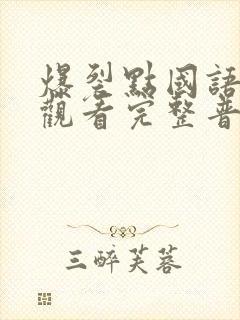 爆裂點國語
觀看完整普
三醉芙蓉